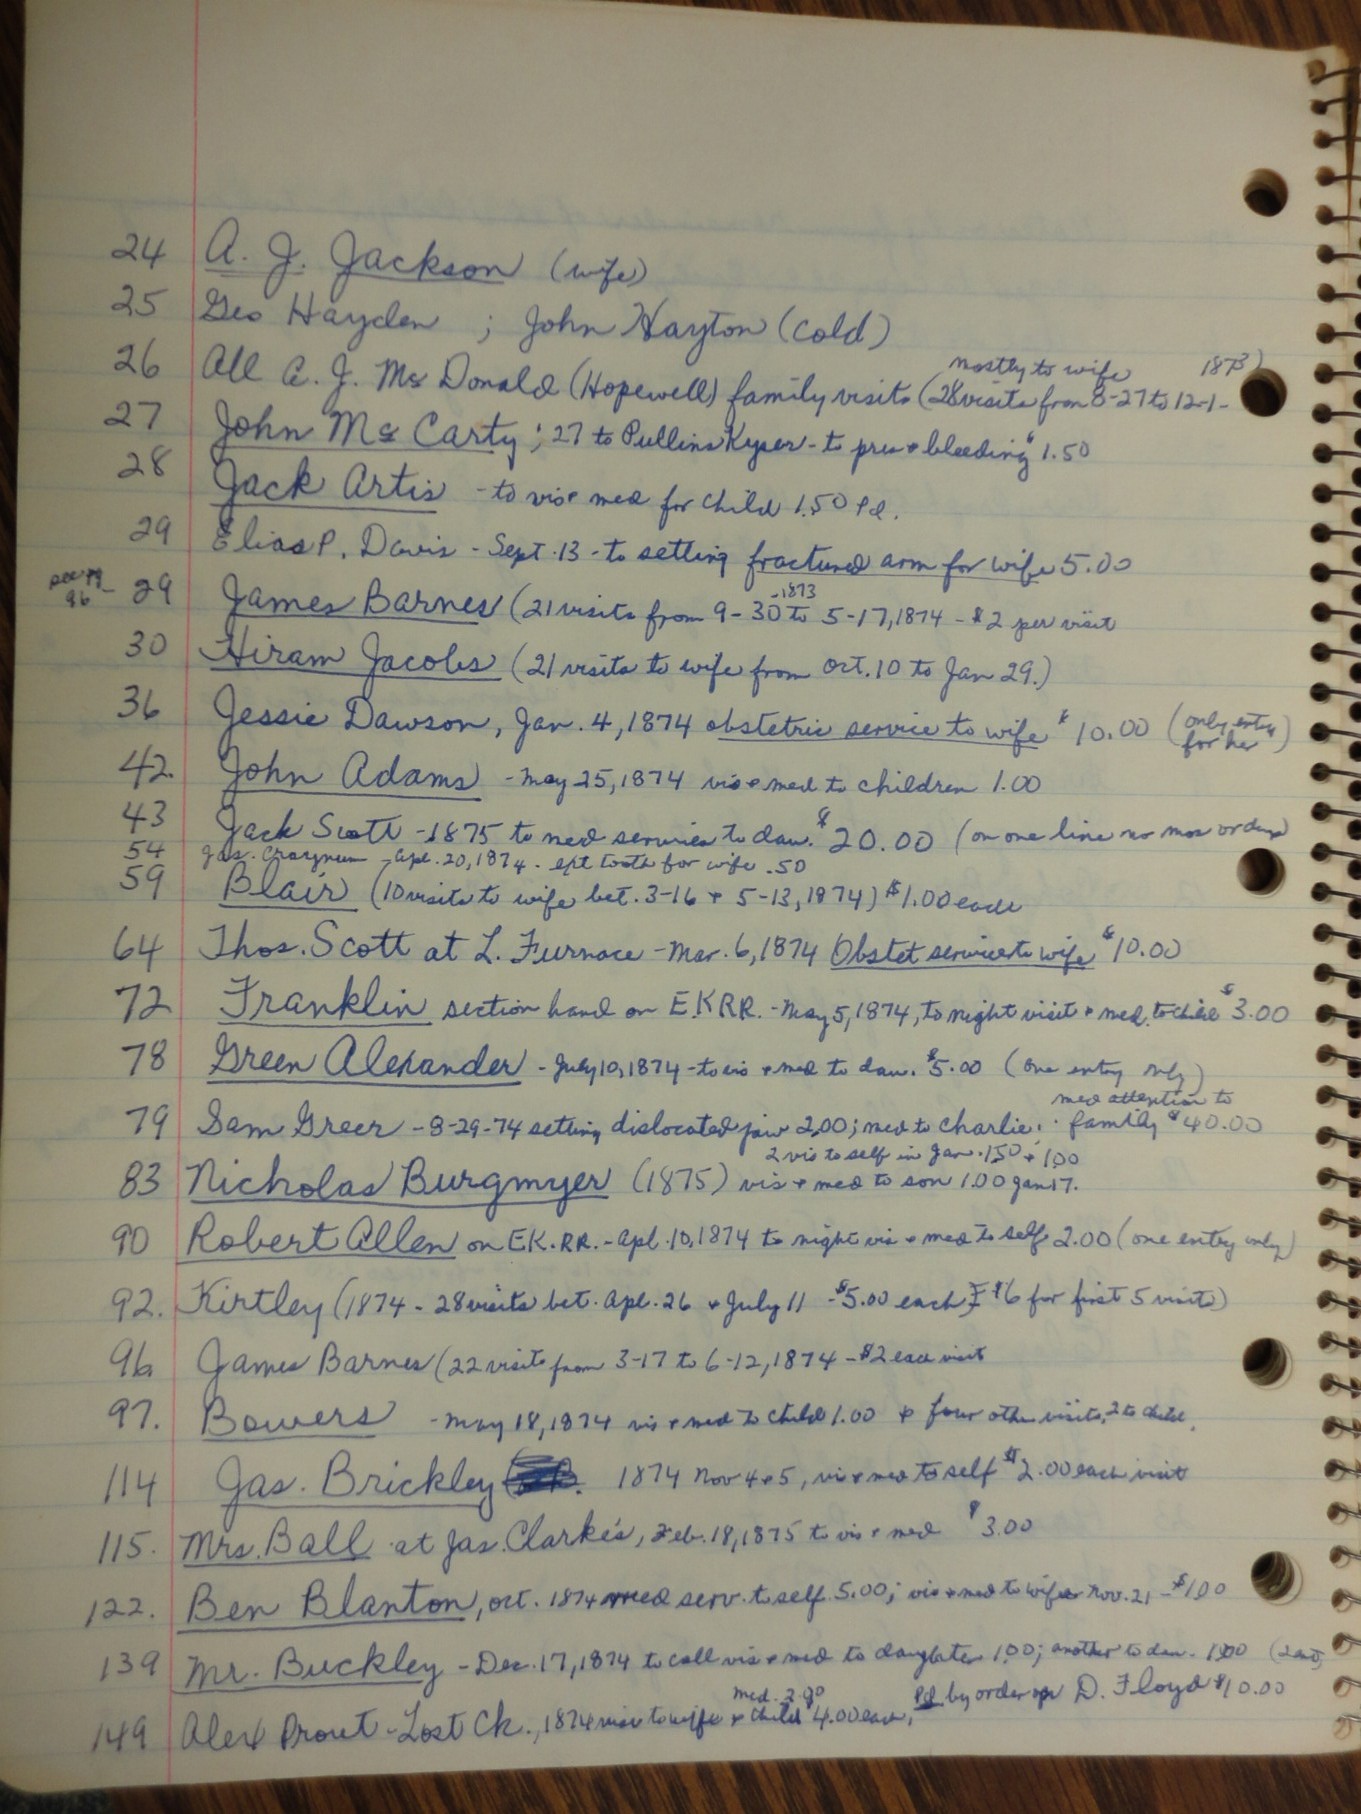 24 A. J. Jackson (wife)
25 Geo Hayden ; John Hayton (cold)
mostly to wife 1873)
26 All A. J. Mc Donald (Hopewell) family visits (28 visits from 8-27 to 12-1-
27 John Mc Carty ; 27 to Pullins Kyser - to pres + bleeding $1.50
28 Jack Artis - to vis + med for child 1.50 Pd.
29 Elias P. Davis - Sept. 13 - to setting fractured arm for wife 5.00
-1873
see 96 - 29 James Barnes (21 visits from 9-30 to 5-17, 1874 - $2 per visit
30 Hiram Jacobs (21 visits to wife from Oct. 10 to Jan 29.)
36 Jessie Dawson, Jan. 4, 1874 obstetric service to wife $10.00 (only entry for her)
42. John Adams - May 25, 1874 vis + med to children 1.00
43 Jack Scott - 1875 to med services to dau. $20.00 (on one line no mos or days)
54 Jas. - Apl. 20, 1874 - ext tooth for wife .50
59 Blair (10 visits to wife bet. 3-16 + 5-13, 1874) $1.00 each
64 Thos. Scott at L. Furnace - Mar. 6, 1874 Obstet service to wife $10.00
72 Franklin section hand on E.K.R.R. - May 5, 1874, to night visit + med. to child $3.00
78 Green Alexander - July 10, 1874 - to vis + med to dau. $5.00 (one entry only)
med attention to
79 Sam Greer - 8-29-74 setting dislocated jaw 2.00; med to Charlie; family $40.00
2 vis to self in Jan. 1.50 + 1.00
83 Nicholas Burgmyer (1875) vis + med to son 1.00 Jan 17.
90 Robert Allen on E.K.R.R. - Apl. 10, 1874 to night vis + med to self 2.00 (one entry only)
92. Kirtley (1874 - 28 visits bet. Apl. 26 + July 11 - $5.00 each, $6 for first 5 visits)
96 James Barnes (22 visits from 3-17 to 6-12, 1874 - $2 each visit
97. Bowers - May 18, 1874 vis + med to child 1.00 + four other visits, 2 to child.
114 Jas. Brickley 1874 Nov 4 + 5, vis + med to self $2.00 each visit
115. Mrs. Ball at Jas. Clarke's, Feb. 18, 1875 to vis + med $3.00
122. Ben Blanton, Oct. 1874 med serv. to self 5.00; vis + med to wife Nov. 21 - $1.00
139 Mr. Buckley - Dec. 17, 1874 to call vis + med to daughter 1.00; another to dau. 1.00
med. 2.90 Pd by order on D. Floyd $10.00
149 Alex Prout - Lost Ck., 1874 visit to wife + child 4.00 each,